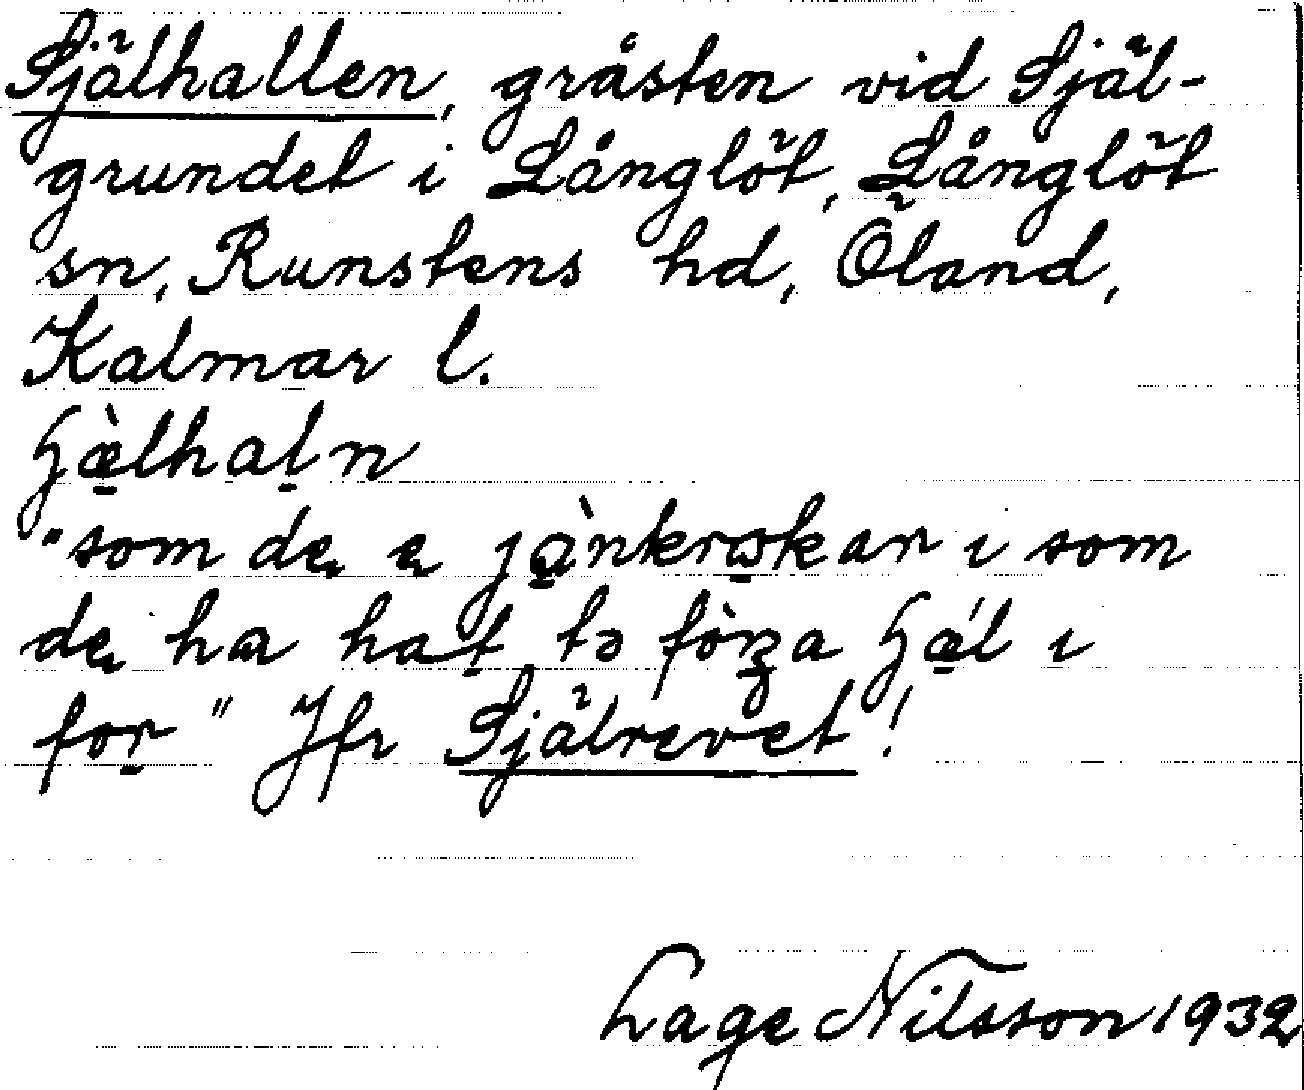 Själhallen, gråsten vid Själ-
grundet i Långlöt, Långlöt
sn, Runstens hd, Öland,
Kalmar l.
ɧæ̀lhaḷn
"som de e jànkrokar ı som
de ha haṭ tə fòrʐa ɧǽl ı
foṛ" Jfr Själrevet!
Lage Nilsson 1932